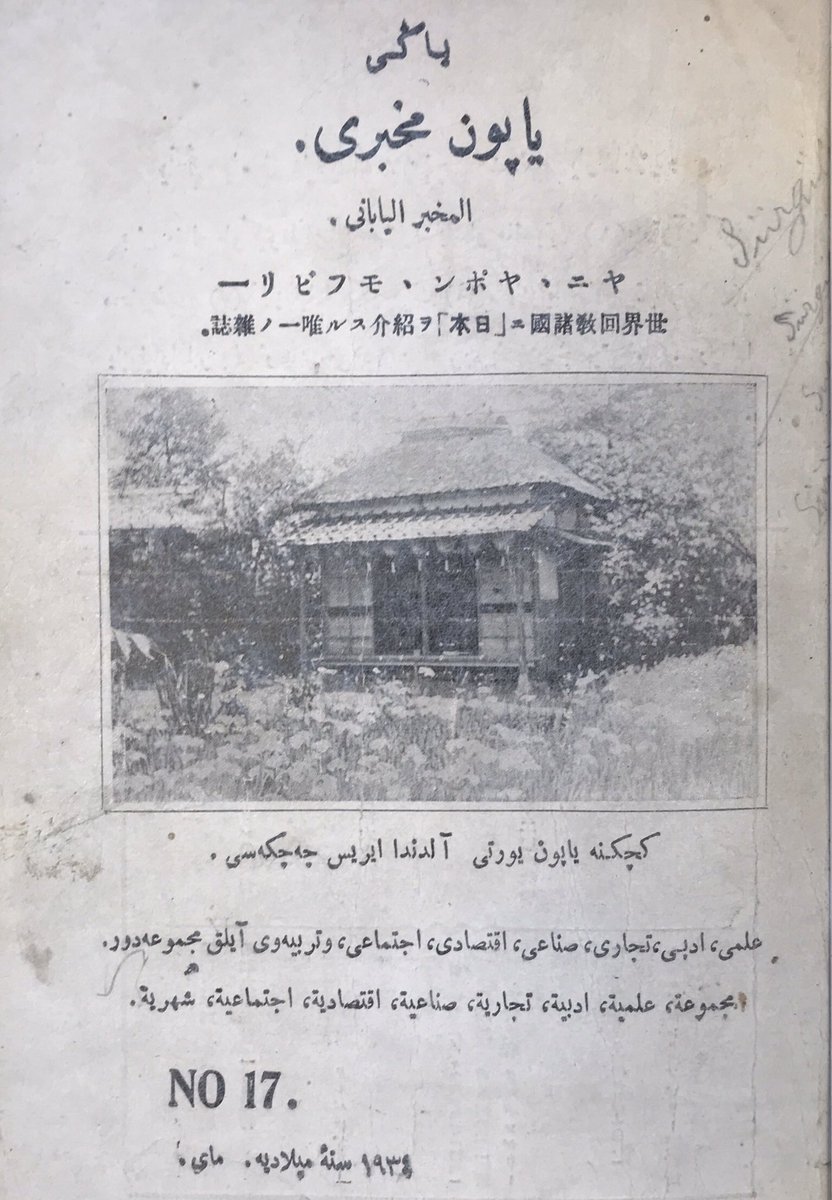 ياڭى
ياپون مخبرى.
المخبر اليابانى.
ヤニ、ヤポン、モフビリー
世界回敎諸國ニ「日本」ヲ紹介スル唯一ノ雜誌。
كچكنه ياپون يورتى آلدندا ايريس چه‌چكه‌سى.
علمى، ادبى، تجارى، صناعى، اقتصادى، اجتماعى، وتربيه‌وى آيلق مجموعه‌دور.
مجموعة، علمية، ادبية، تجارية، صناعية، اقتصادية، اجتماعية، شهرية.
NO 17.
١٩٣٤ سنۀ ميلاديه. ماى.